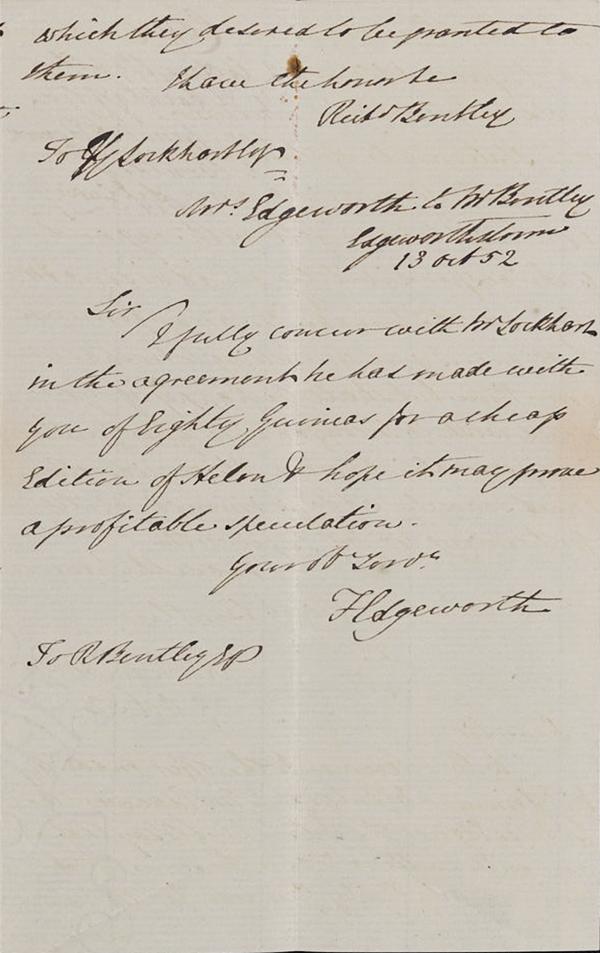 which they desired to be granted to
them. I have the honor &c
Richd Bentley
To Lockhart Esq
Mrs Edgeworth to Mr Bentley
Edgeworthstown
13 Oct 52
Sir
I fully concur with Mr Lockhart
in the agreement he has made with
you of Eighty Guineas for a cheap
Edition of Helen & hope it may prove
a profitable speculation.
Your obt Servt
F Edgeworth
To R Bentley Esq